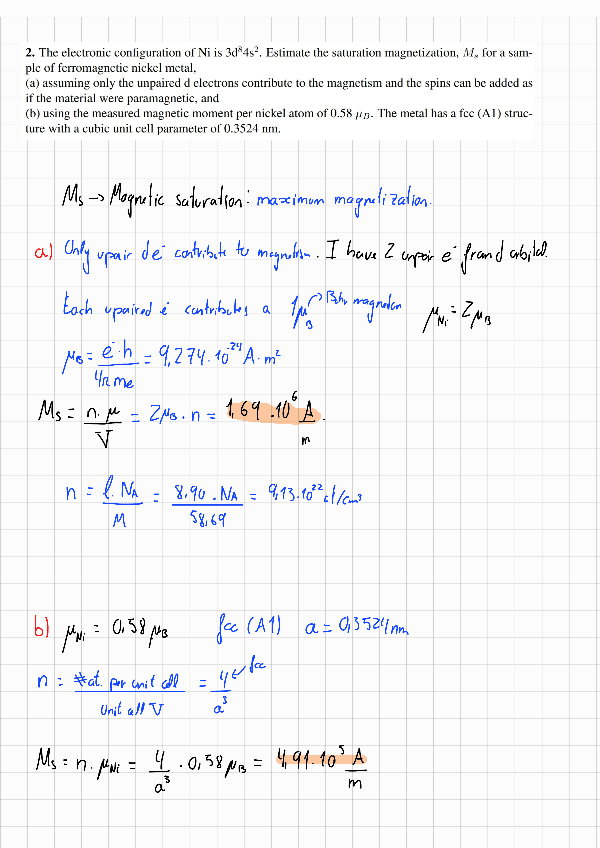 2. The electronic configuration of Ni is 3d⁸4s². Estimate the saturation magnetization, Mₛ for a sam-
ple of ferromagnetic nickel metal,
(a) assuming only the unpaired d electrons contribute to the magnetism and the spins can be added as
if the material were paramagnetic, and
(b) using the measured magnetic moment per nickel atom of 0.58 μ_B. The metal has a fcc (A1) struc-
ture with a cubic unit cell parameter of 0.3524 nm.
Ms → Magnetic saturation: maximum magnetization.
a) Only upair d e⁻ contribute to magnetism. I have 2 unpair e⁻ from d orbital.
Each upaired e⁻ contributes a 1μ_B → Bohr magneton μ_Ni = 2μ_B
μ_B = e⁻·h / 4π me = 9,274·10⁻²⁴ A·m²
Ms = n·μ / V = 2μ_B · n = 1,69·10⁶ A/m
n = ρ·N_A / M = 8,90·N_A / 58,69 = 9,13·10²² at/cm³
b) μ_Ni = 0,58 μ_B fcc (A1) a = 0,3524 nm
n = #at. per unit cell / Unit cell V = 4 / a³ ← fcc
Ms = n·μ_Ni = 4 / a³ · 0,58 μ_B = 4,91·10⁵ A/m